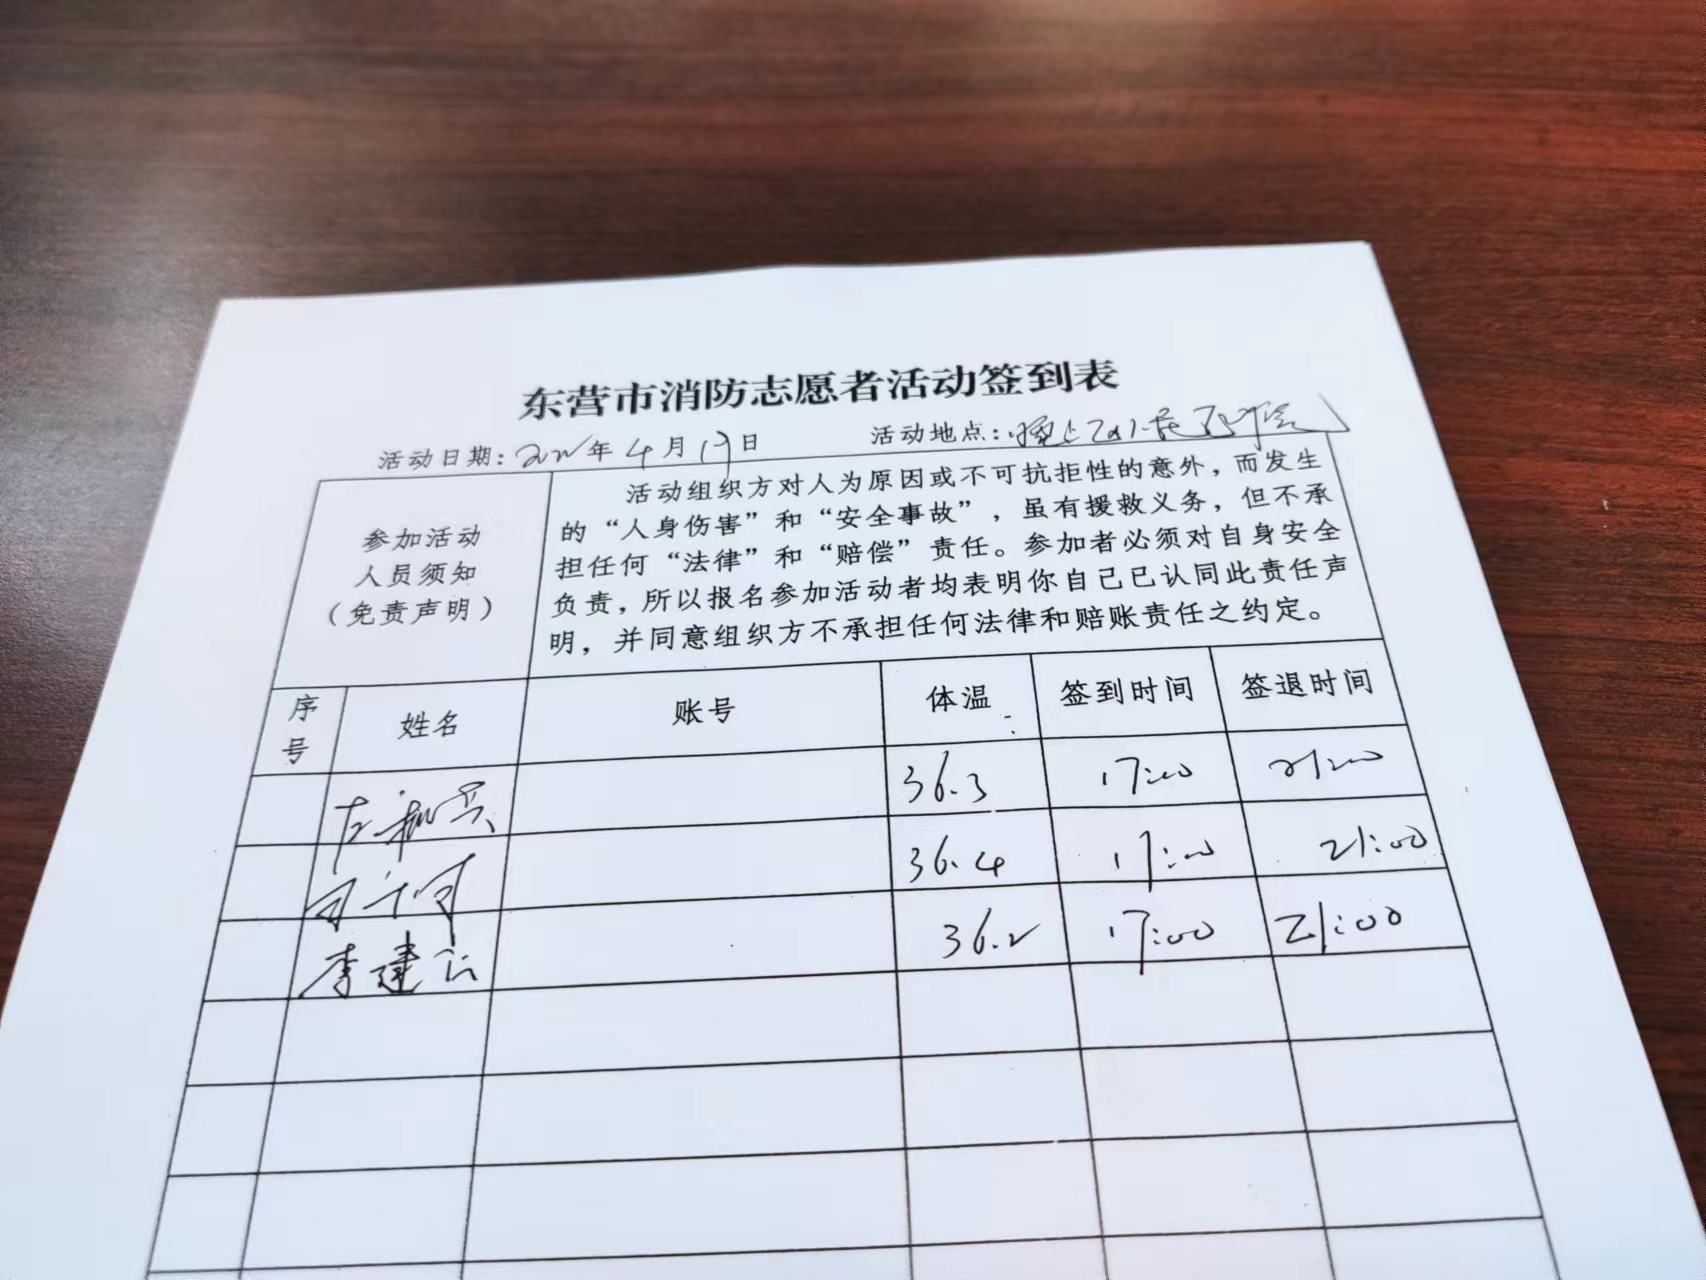 东营市消防志愿者活动签到表
活动日期：2022年4月19日 活动地点：
参加活动
人员须知
（免责声明）
活动组织方对人为原因或不可抗拒性的意外，而发生
的“人身伤害”和“安全事故”，虽有援救义务，但不承
担任何“法律”和“赔偿”责任。参加者必须对自身安全
负责，所以报名参加活动者均表明你自己已认同此责任声
明，并同意组织方不承担任何法律和赔账责任之约定。
序号 姓名 账号 体温 签到时间 签退时间
36.3 17:00 21:00
36.4 17:00 21:00
李建 36.2 17:00 21:00